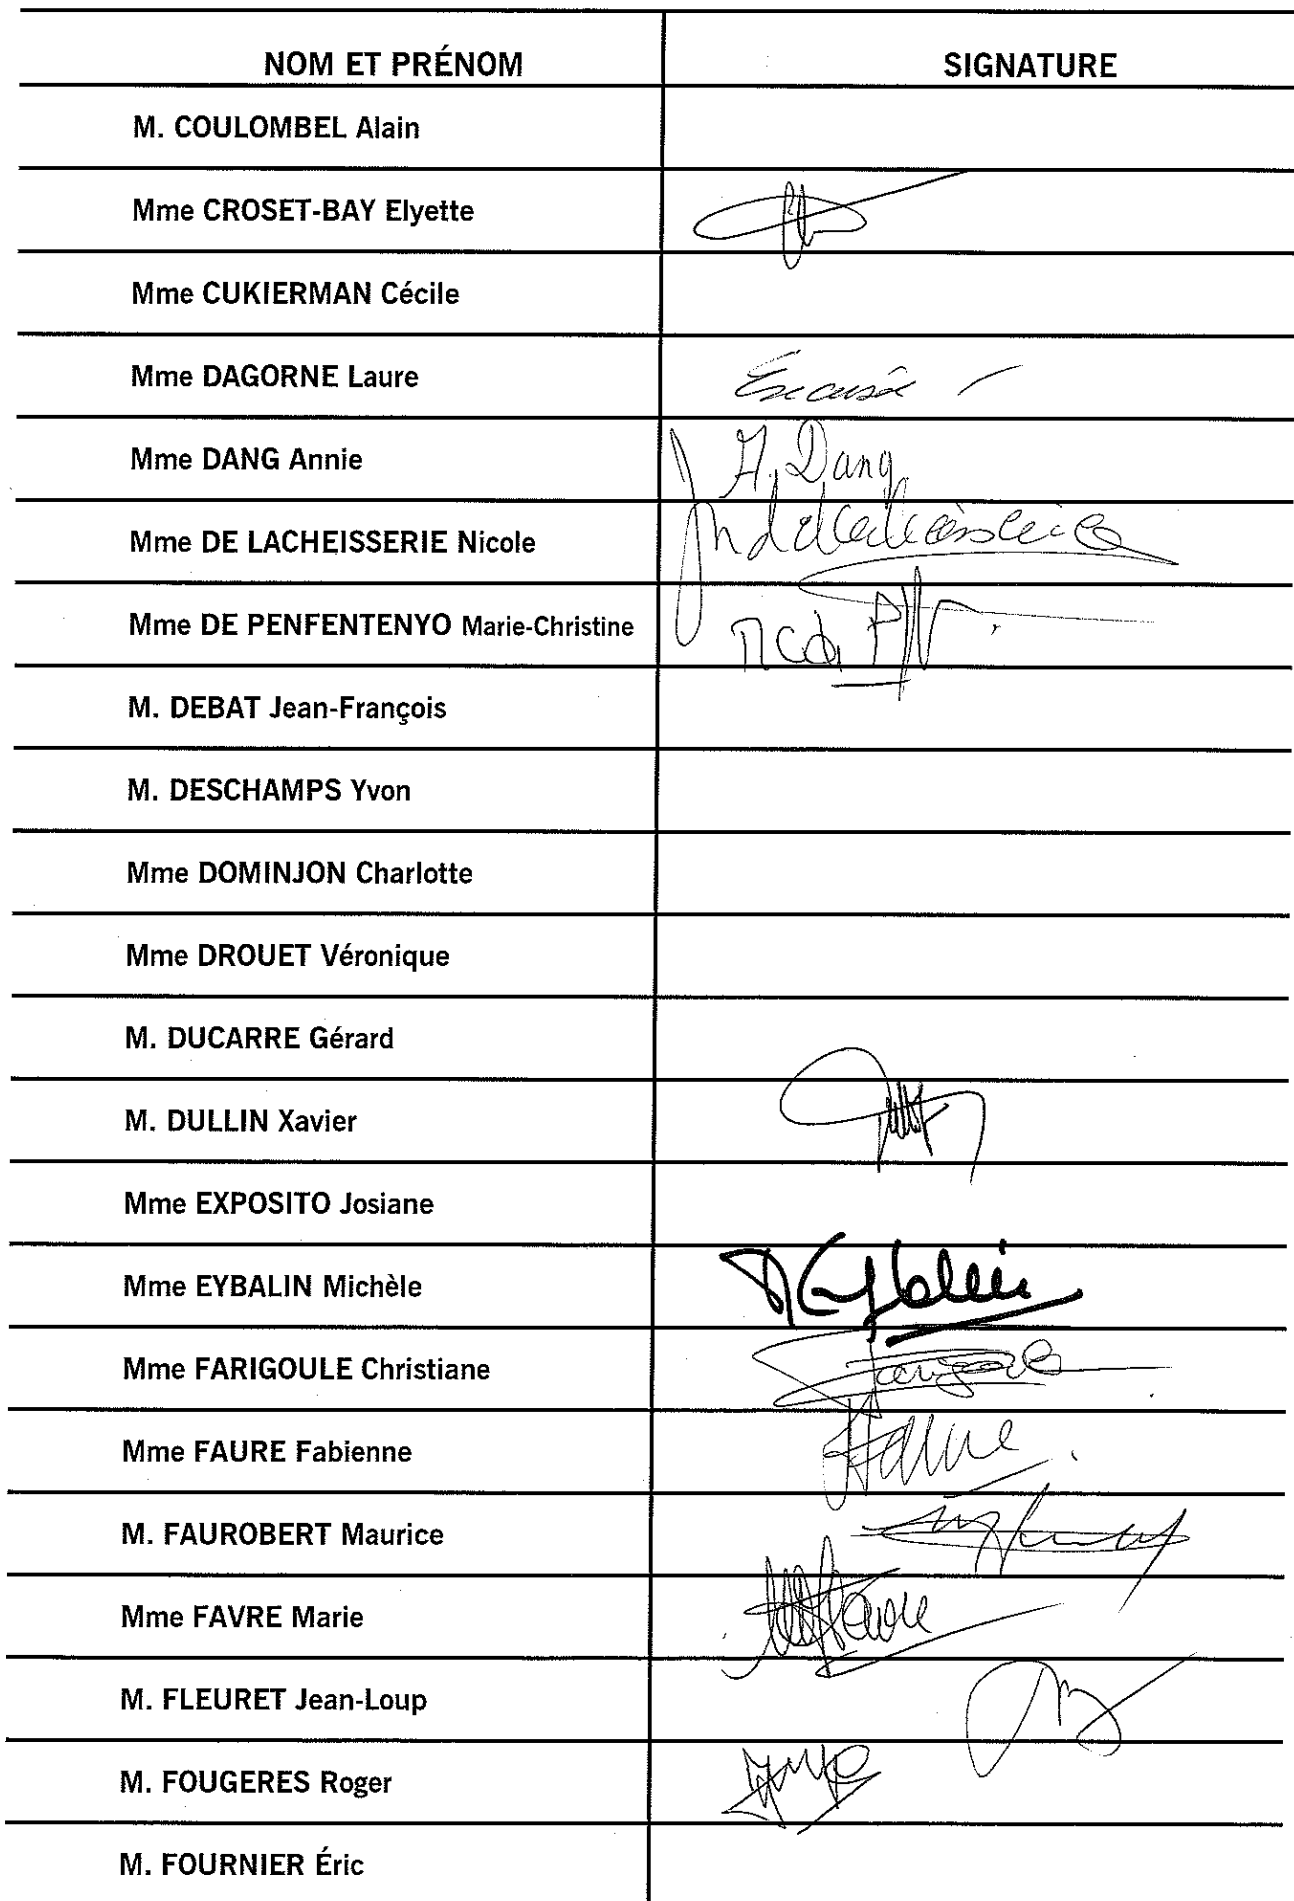 NOM ET PRÉNOM SIGNATURE
M. COULOMBEL Alain
Mme CROSET-BAY Elyette
Mme CUKIERMAN Cécile
Mme DAGORNE Laure Excusée
Mme DANG Annie A. Dang
Mme DE LACHEISSERIE Nicole
Mme DE PENFENTENYO Marie-Christine
M. DEBAT Jean-François
M. DESCHAMPS Yvon
Mme DOMINJON Charlotte
Mme DROUET Véronique
M. DUCARRE Gérard
M. DULLIN Xavier
Mme EXPOSITO Josiane
Mme EYBALIN Michèle MEybalin
Mme FARIGOULE Christiane
Mme FAURE Fabienne
M. FAUROBERT Maurice
Mme FAVRE Marie
M. FLEURET Jean-Loup
M. FOUGERES Roger
M. FOURNIER Éric